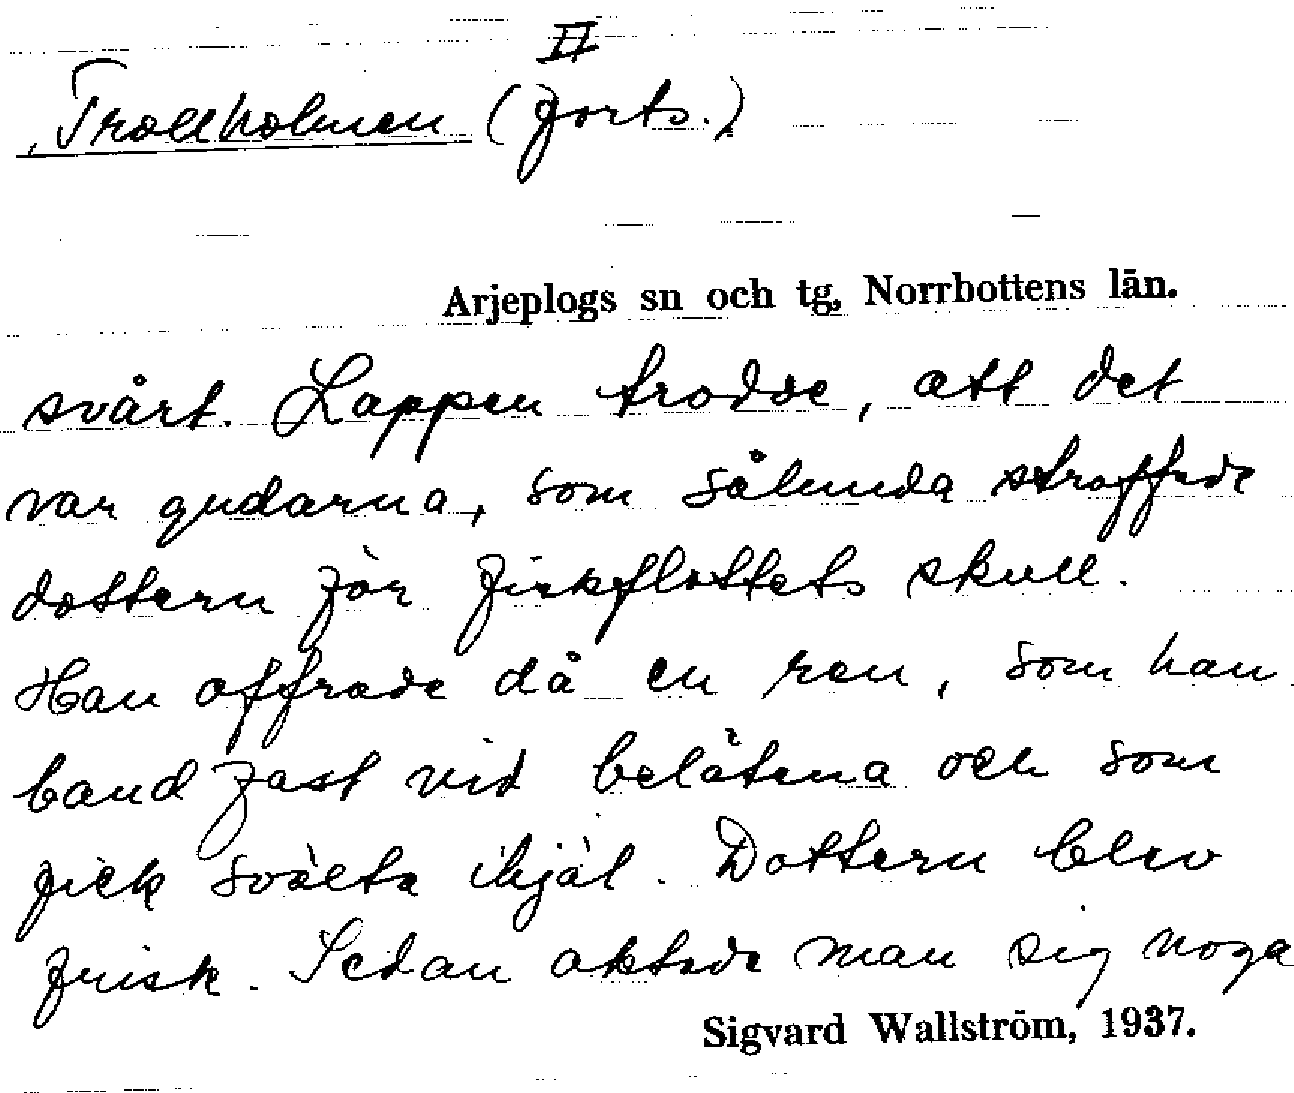 II
Trollholmen (forts.)
Arjeplogs sn och tg, Norrbottens län.
svårt. Lappen trodde, att det
var gudarna, som sålunda straffade
dottern för fiskflottets skull.
Han offrade då en ren, som han
band fast vid belätena och som
fick svälta ihjäl. Dottern blev
frisk. Sedan aktade man sig noga
Sigvard Wallström, 1937.